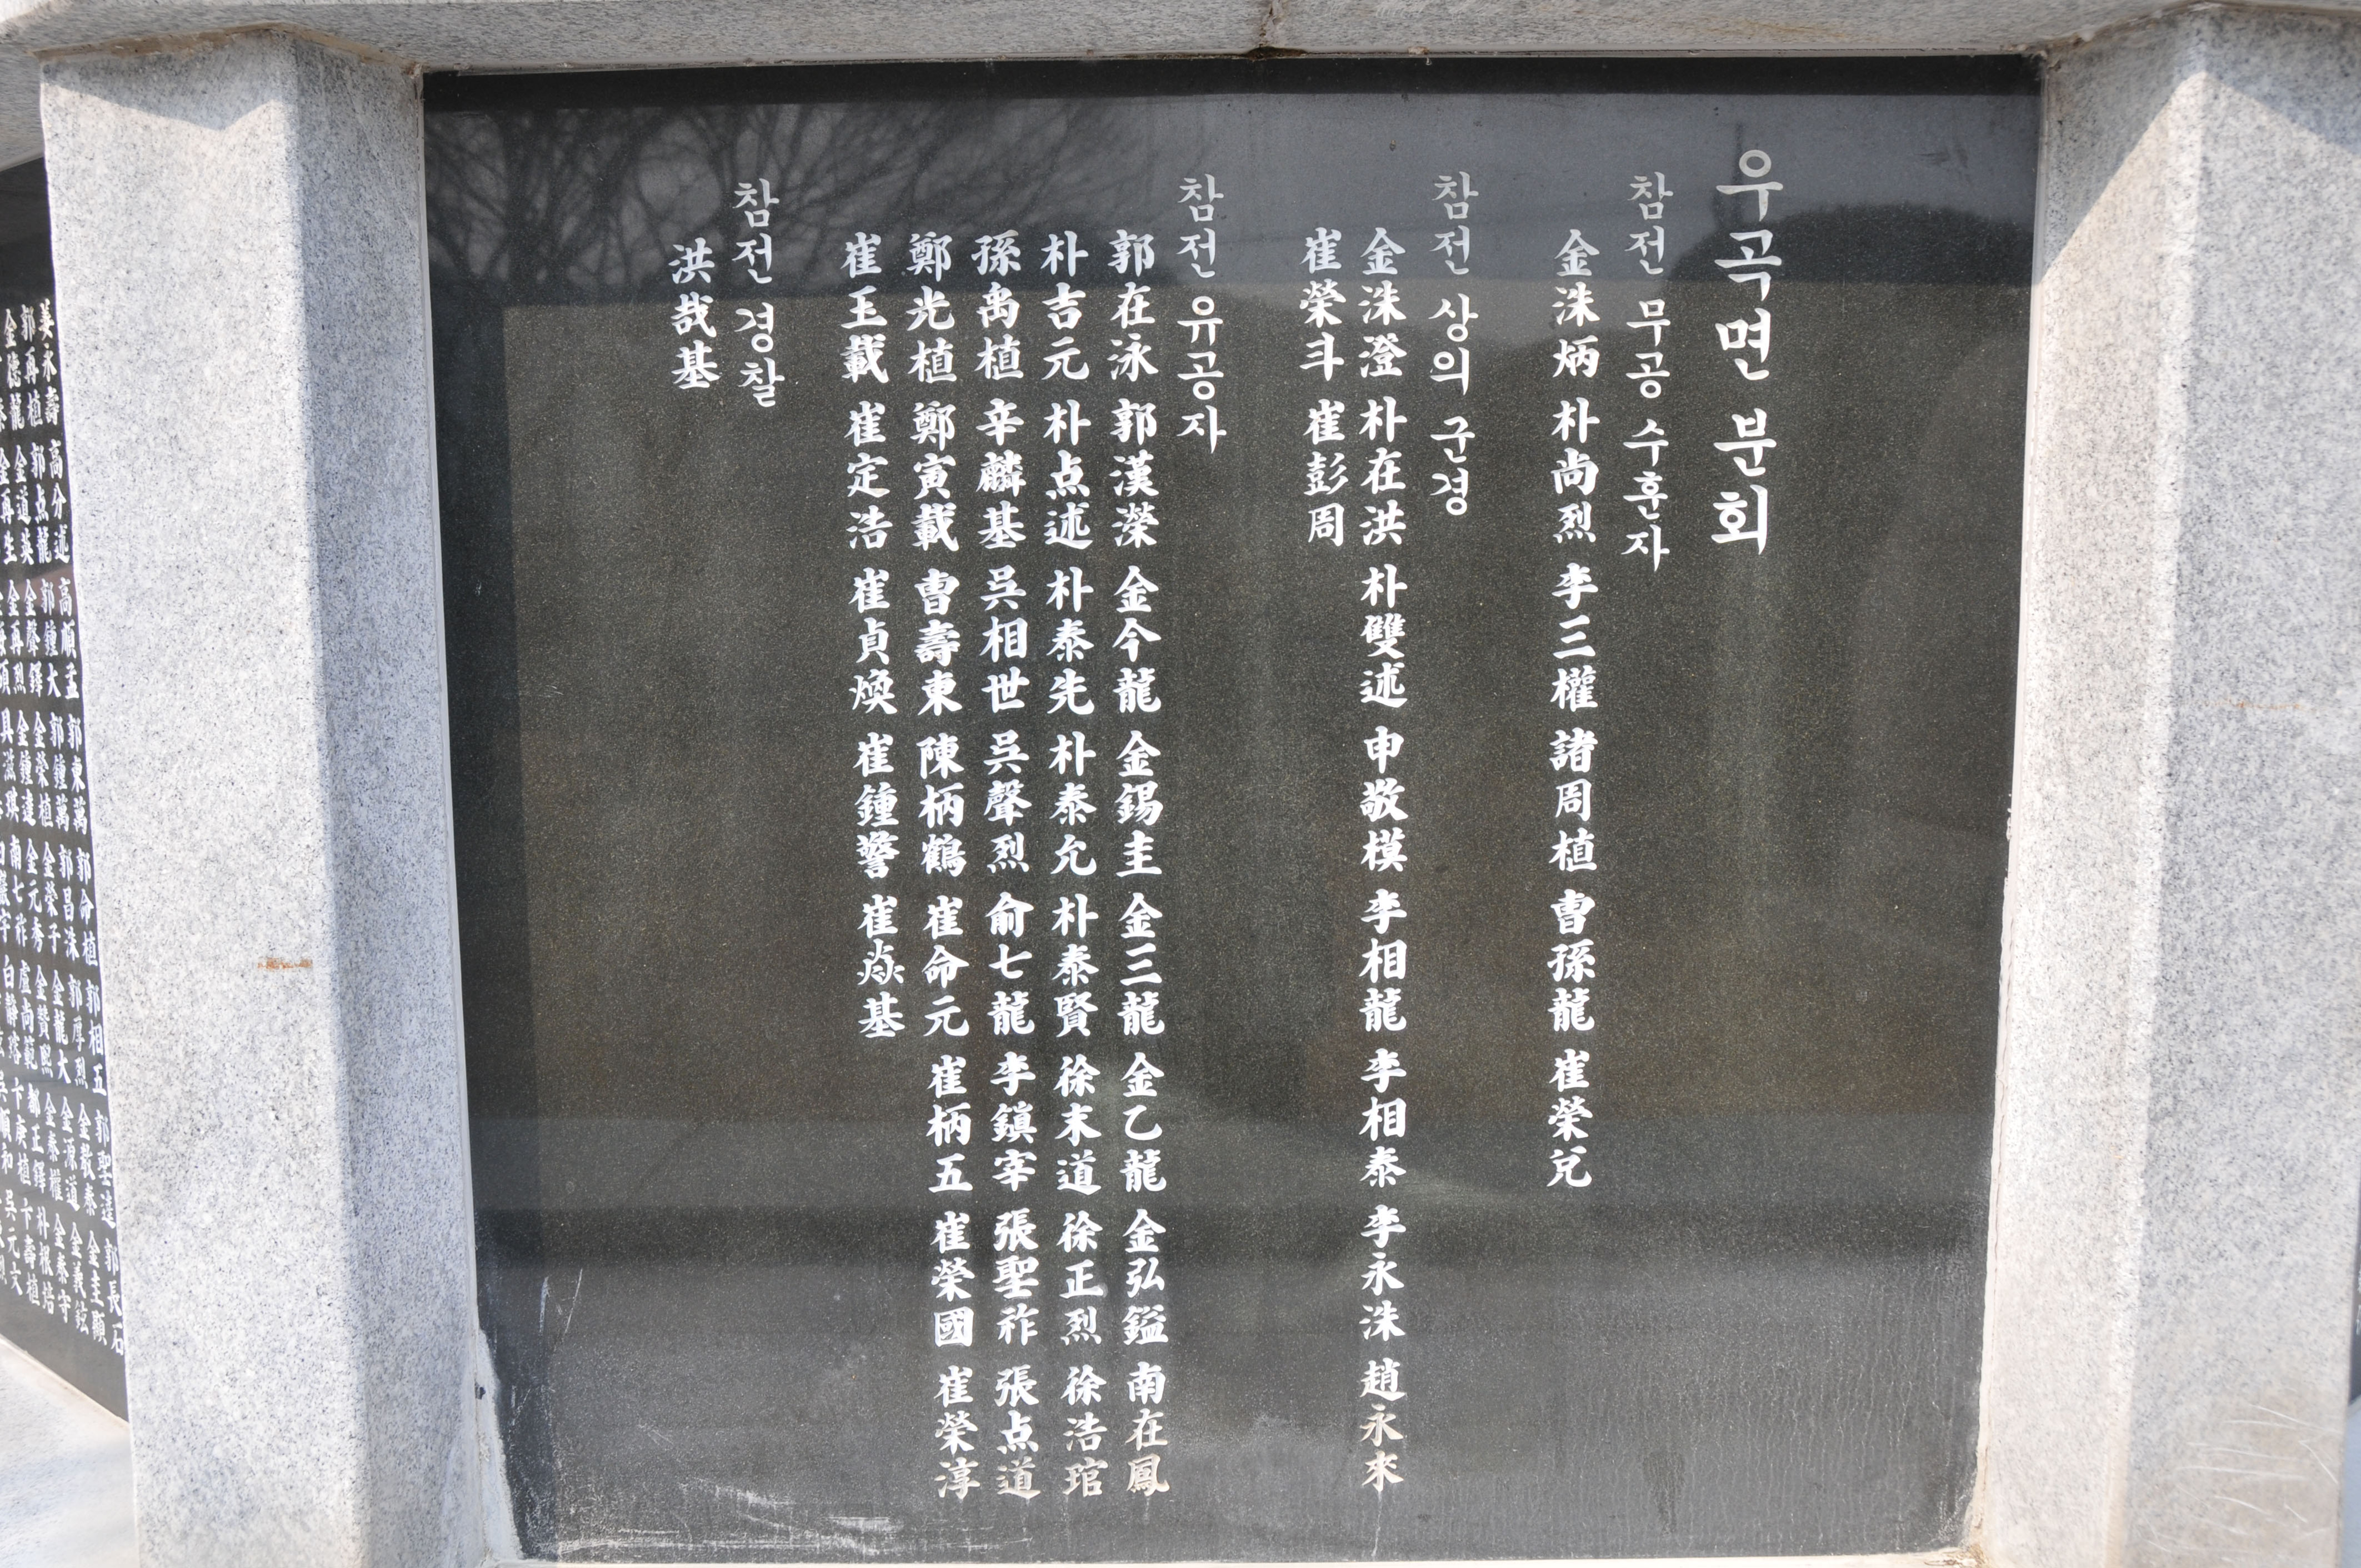 우곡면 분회
참전 무공 수훈자
金洙炳 朴尚烈 李三權 諸周植 曺孫龍 崔榮兌
참전 상의 군경
金洙澄 朴在洪 朴雙述 申敬模 李相龍 李相泰 李永洙 趙永來
崔榮斗 崔彭周
참전 유공자
郭在泳 郭漢榮 金今龍 金錫圭 金三龍 金乙龍 金弘鎰 南在鳳
朴吉元 朴点述 朴泰先 朴泰允 朴泰賢 徐末道 徐正烈 徐浩琯
孫禹植 辛麟基 吳相世 吳聲烈 俞七龍 李鎭宰 張聖祚 張点道
鄭光植 鄭寅載 曺壽東 陳柄鶴 崔命元 崔柄五 崔榮國 崔榮淳
崔玉載 崔定浩 崔貞煥 崔鍾警 崔焱基
참전 경찰
洪哉基
姜永壽 高分述 高順孟 郭東萬 郭命植 郭相五 郭聖達 郭長石